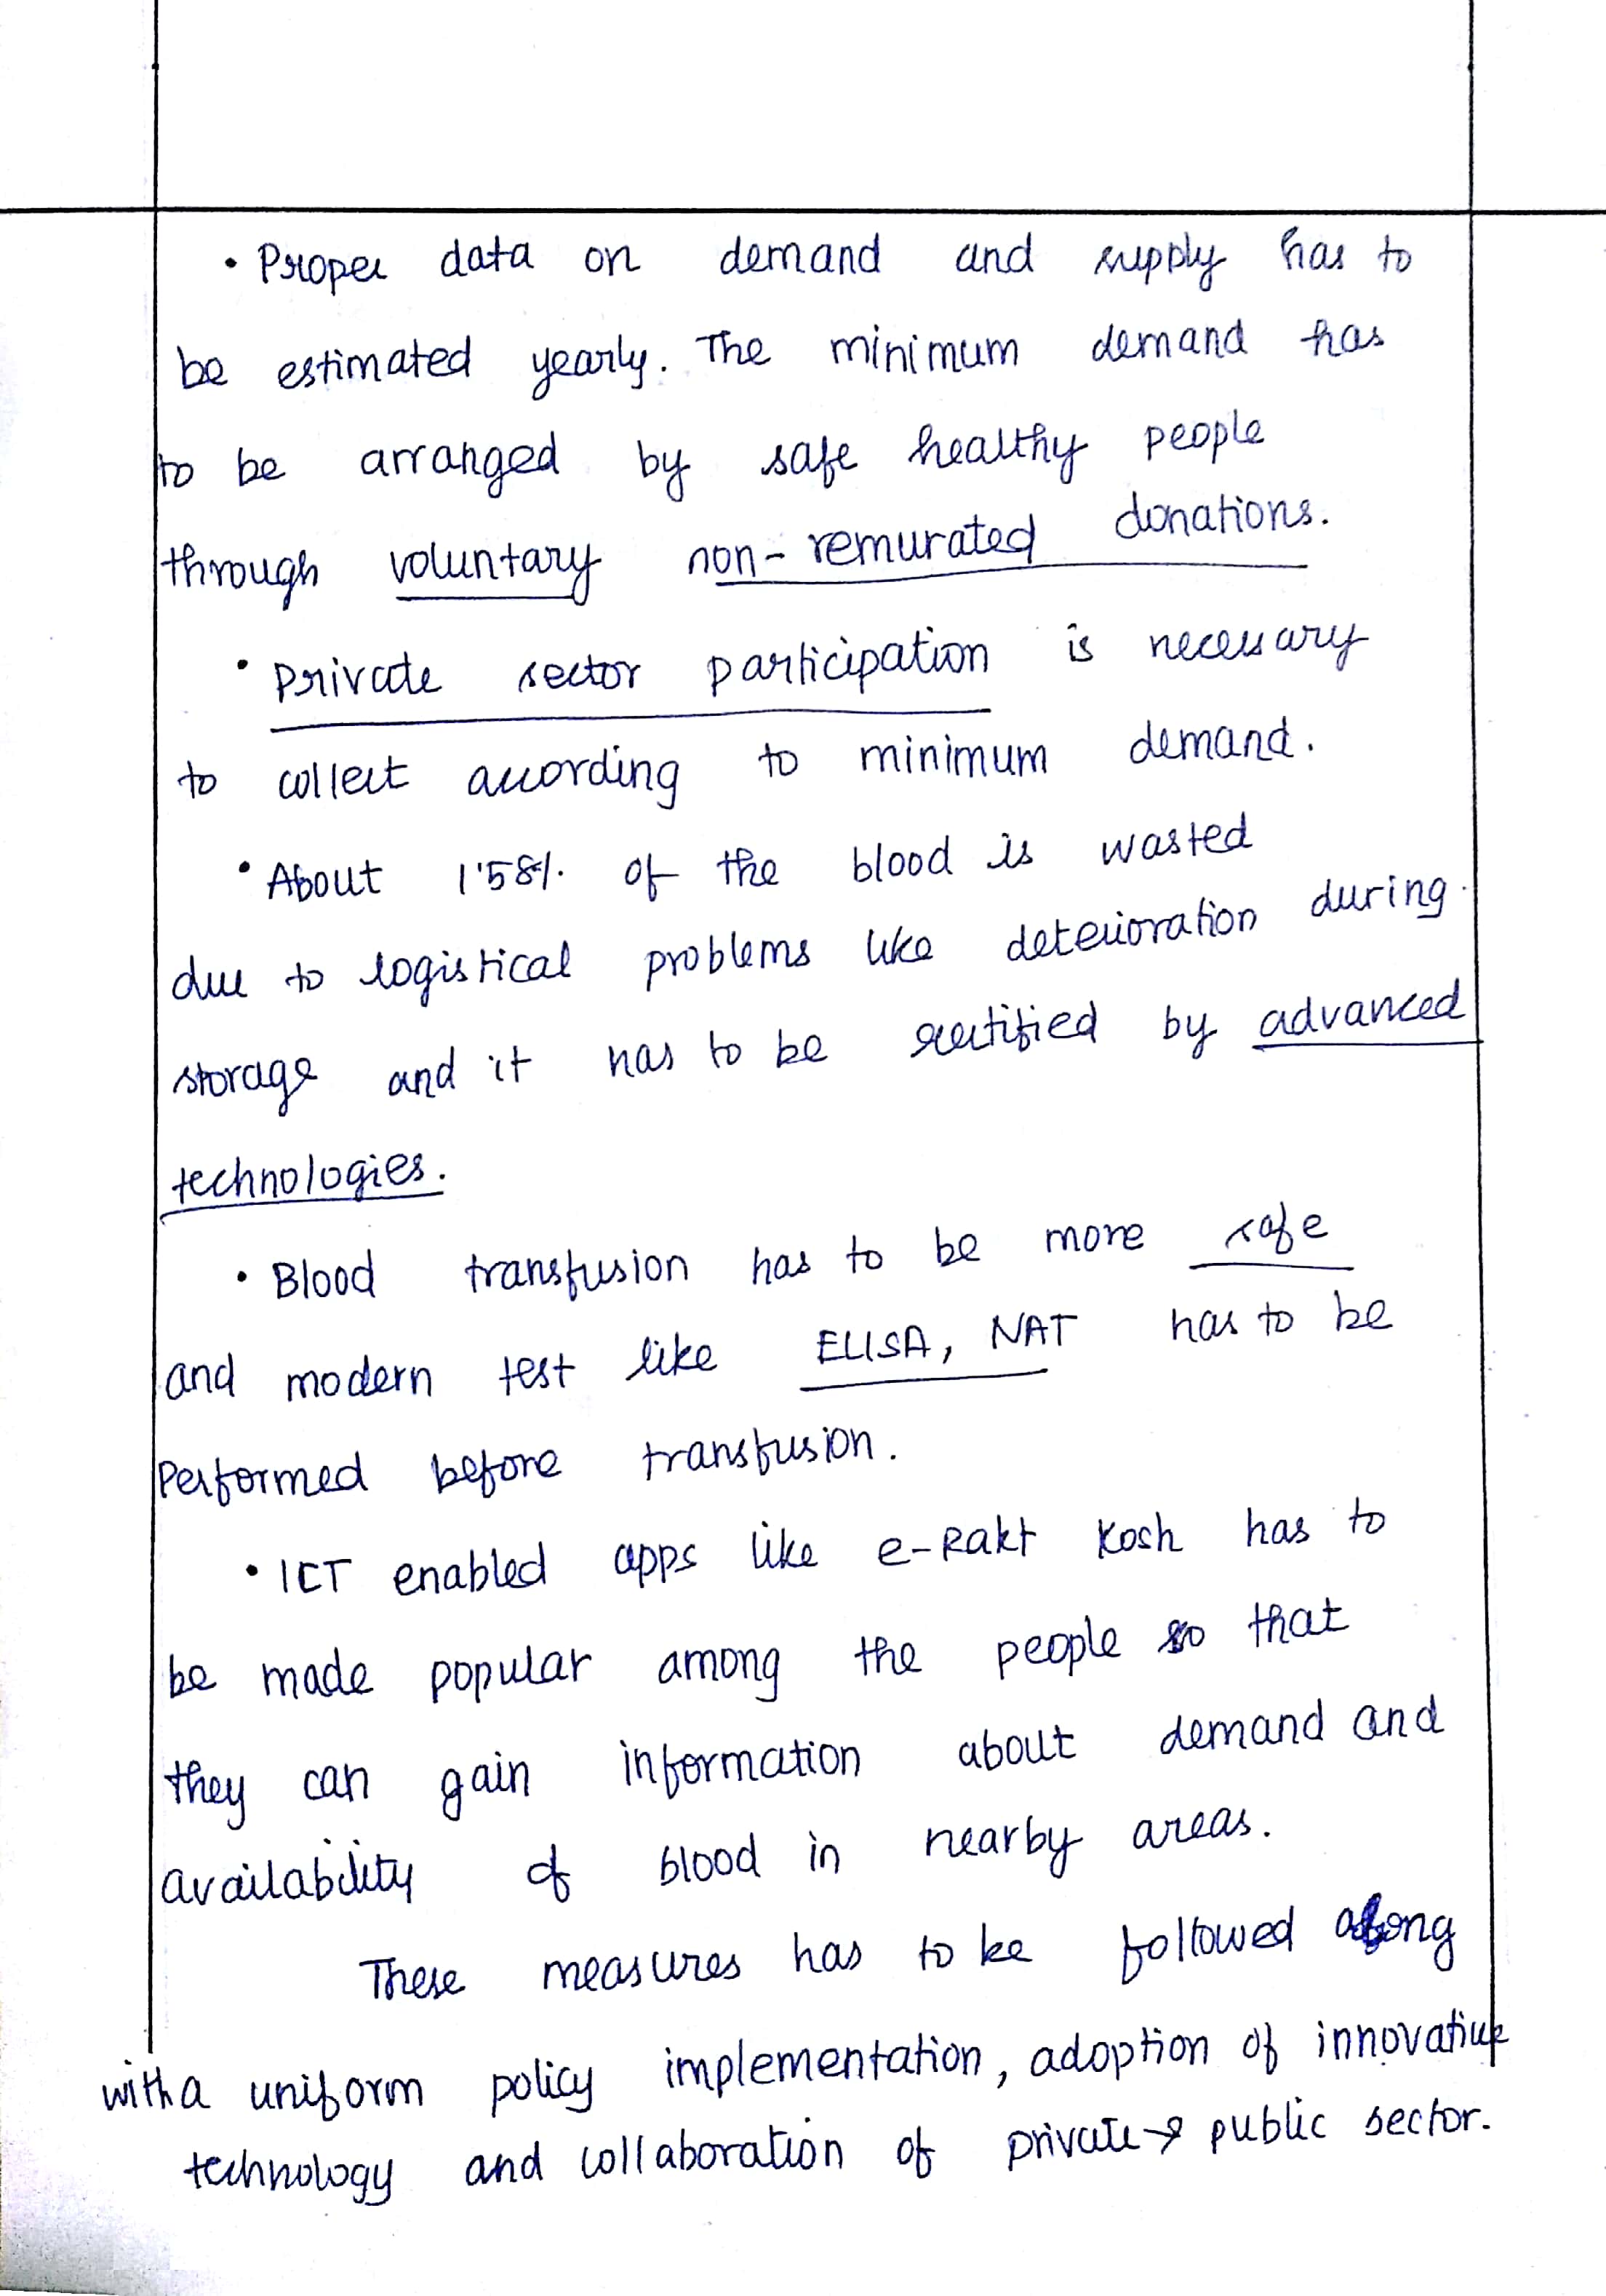 • Proper data on demand and supply has to
be estimated yearly. The minimum demand has
to be arranged by safe healthy people
through voluntary non-remurated donations.
• Private sector participation is necessary
to collect according to minimum demand.
• About 1.58% of the blood is wasted
due to logistical problems like deterioration during
storage and it has to be rectified by advanced
technologies.
• Blood transfusion has to be more safe
and modern test like ELISA, NAT has to be
Performed before transfusion.
• ICT enabled apps like e-Rakt Kosh has to
be made popular among the people so that
they can gain information about demand and
availability of blood in nearby areas.
These measures has to be followed along
with a uniform policy implementation, adoption of innovative
technology and collaboration of private & public sector.